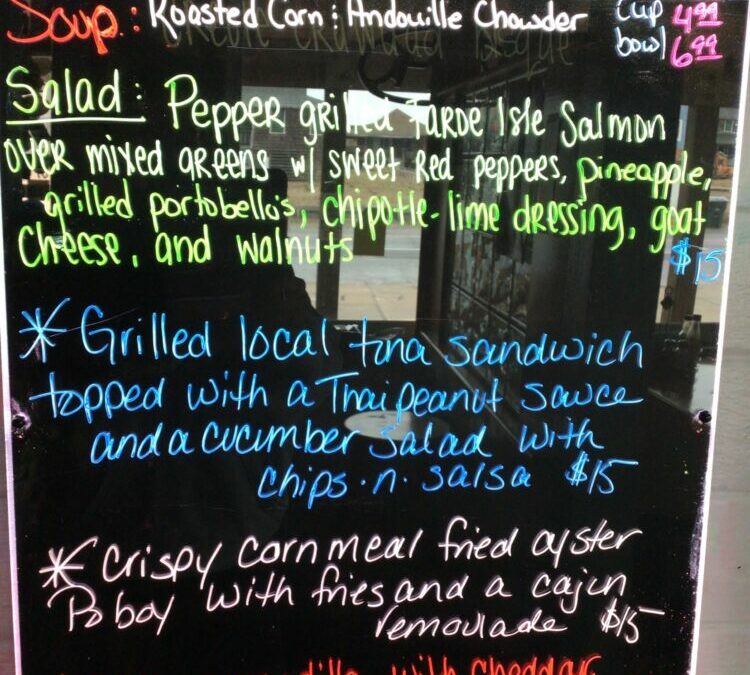 Soup: Roasted Corn & Andouille Chowder cup 4.99
bowl 6.99
Salad: Pepper grilled Faroe Isle Salmon
over mixed greens w/ sweet Red peppers, pineapple,
grilled portobello's, chipotle-lime dressing, goat
Cheese, and walnuts $15
* Grilled local tuna sandwich
topped with a Thai peanut sauce
and a cucumber salad with
chips.n.salsa $15
* Crispy cornmeal fried oyster
Po boy with fries and a cajun
remoulade $15
with cheddar